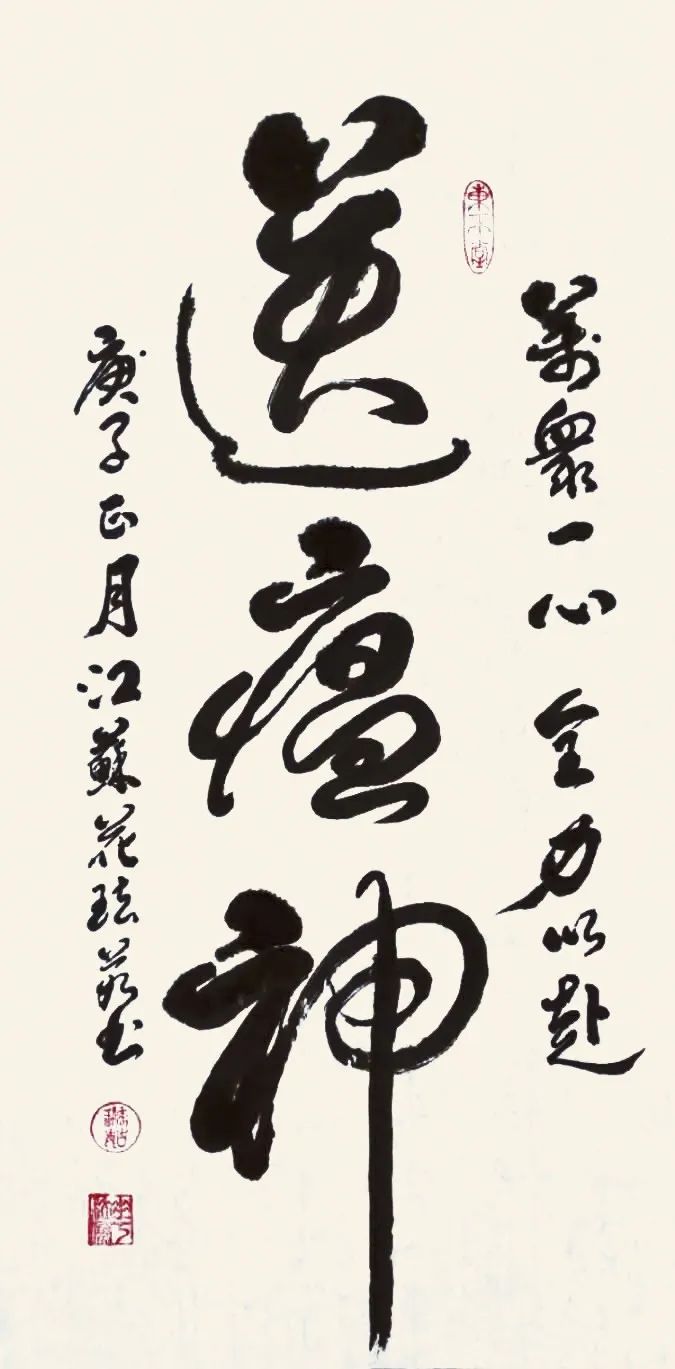 萬衆一心 全力以赴
送瘟神
庚子正月江蘇花玹敬书